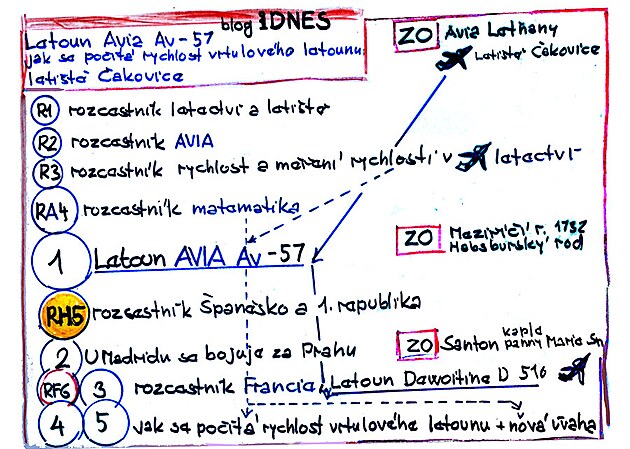 blog IDNES
Letoun Avia Av-57
jak se počítá rychlost vrtulového letounu
letiště Čakovice
ZO Avia Letňany
Letiště Čakovice
R1 rozcestník letectví a letiště
R2 rozcestník AVIA
R3 rozcestník rychlost a měření rychlosti v letectví
RA4 rozcestník matematika
1 Letoun AVIA Av-57
ZO Meziříčí r. 1732
Habsburský rod
RH5 rozcestník Španělsko a 1. republika
ZO Santon kaple panny Marie Sn
2 U Madridu se bojuje za Prahu
RF6 3 rozcestník Francie Letoun Dewoitine D 510
4 5 jak se počítá rychlost vrtulového letounu + nová úvaha